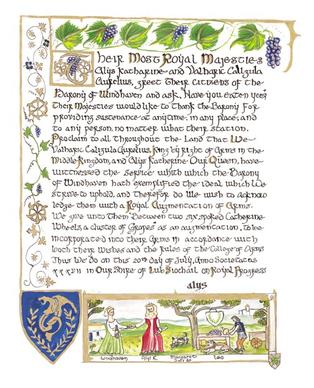 Their Most Royal Majesties
Alys Katharine and Valharic Caligula
Aurelius, greet Their Citizens of the
Barony of Windhaven and ask, Have you eaten yet?
Their Majesties would like to Thank the Barony For
providing sustenance at anytime, in any place, and
to any person no matter what their station.
Proclaim to all Throughout the Land that We
Valharic Caligula Aurelius, King by right of Arms in the
Middle Kingdom, and Alys Katherine Our Queen, have
witnessed the Service with which the Barony
of Windhaven hath exemplified the ideal which We
strive to uphold, and Therefore do We wish to acknow
ledge them with a Royal Augmentation of Arms.
We give unto Them Between two six spoked Catherine
Wheels, a Cluster of Grapes as an augmentation, to be
incorporated into their Arms in accordance with
both their Wishes and the Rules of the College of Arms
Thus We do on this 20th Day of July, Anno Societatis
in Our Shire of on Royal Progress
alys
Windhaven Alys K. Margaret Leo